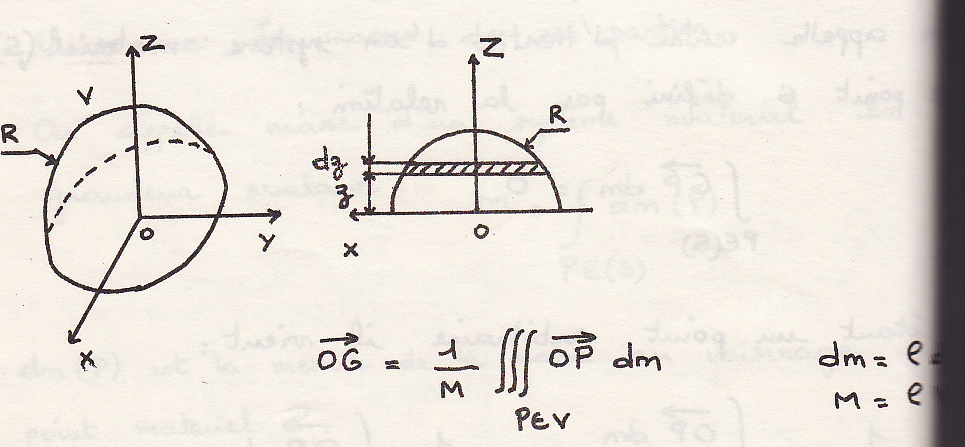 Z
V
R
O
Y
X
Z
R
dz
z
X
O
OG = 1/M ∭ OP dm
P∈V
dm = ρ
M = ρ